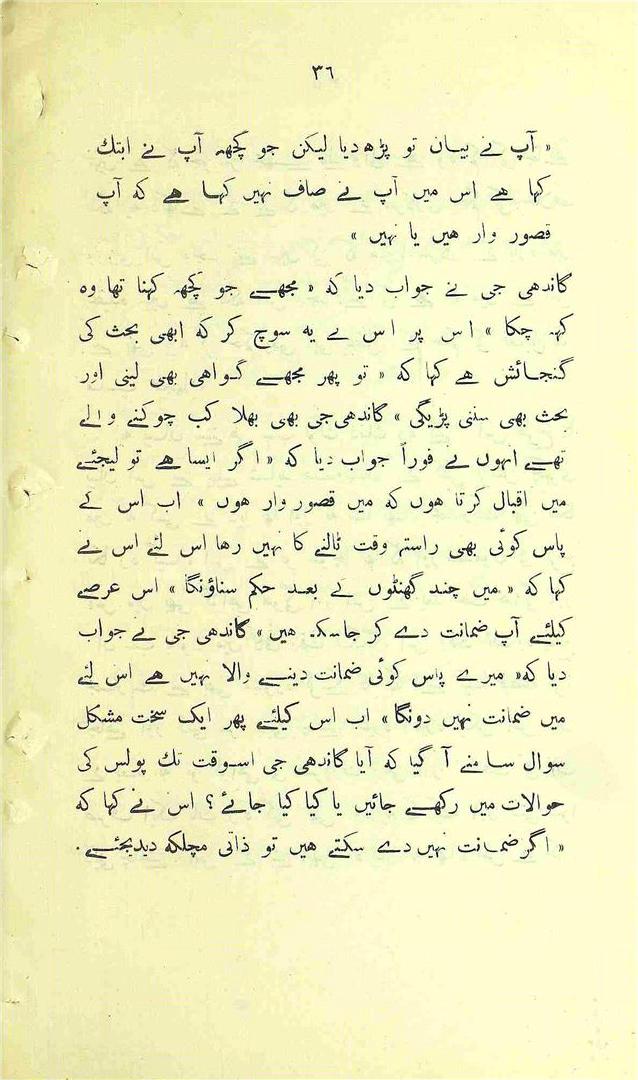 ۳٦
« آپ نے بیان تو پڑھ دیا لیکن جو کچھہ آپ نے ابتك
کہا ھے اس میں آپ نے صاف نہیں کہا ھے کہ آپ
قصور وار ھیں یا نہیں »
گاندھی جی نے جواب دیا کہ « مجھے جو کچھہ کہنا تھا وہ
کہہ چکا » اس پر اس نے یہ سوچ کر کہ ابھی بحث کی
گنجائش ھے کہا کہ « تو پھر مجھے گواھی بھی لینی اور
بحث بھی سننی پڑیگی » گاندھی جی بھی بھلا کب چوکنے والے
تھے انہوں نے فوراً جواب دیا کہ « اگر ایسا ھے تو لیجئے
میں اقبال کرتا ھوں کہ میں قصور وار ھوں » اب اس کے
پاس کوئی بھی راستہ وقت ٹالنے کا نہیں رھا اس لئے اس نے
کہا کہ « میں چند گھنٹوں کے بعد حکم سناؤنگا » اس عرصے
کیلئے آپ ضمانت دے کر جاسکتے ھیں » گاندھی جی نے جواب
دیا کہ « میرے پاس کوئی ضمانت دینے والا نہیں ھے اس لئے
میں ضمانت نہیں دونگا » اب اس کیلئے پھر ایک سخت مشکل
سوال سامنے آ گیا کہ آیا گاندھی جی اسوقت تك پولس کی
حوالات میں رکھے جائیں یا کیا کیا جائے ؟ اس نے کہا کہ
« اگر ضمانت نہیں دے سکتے ھیں تو ذاتی مچلکہ دیدیجئے .